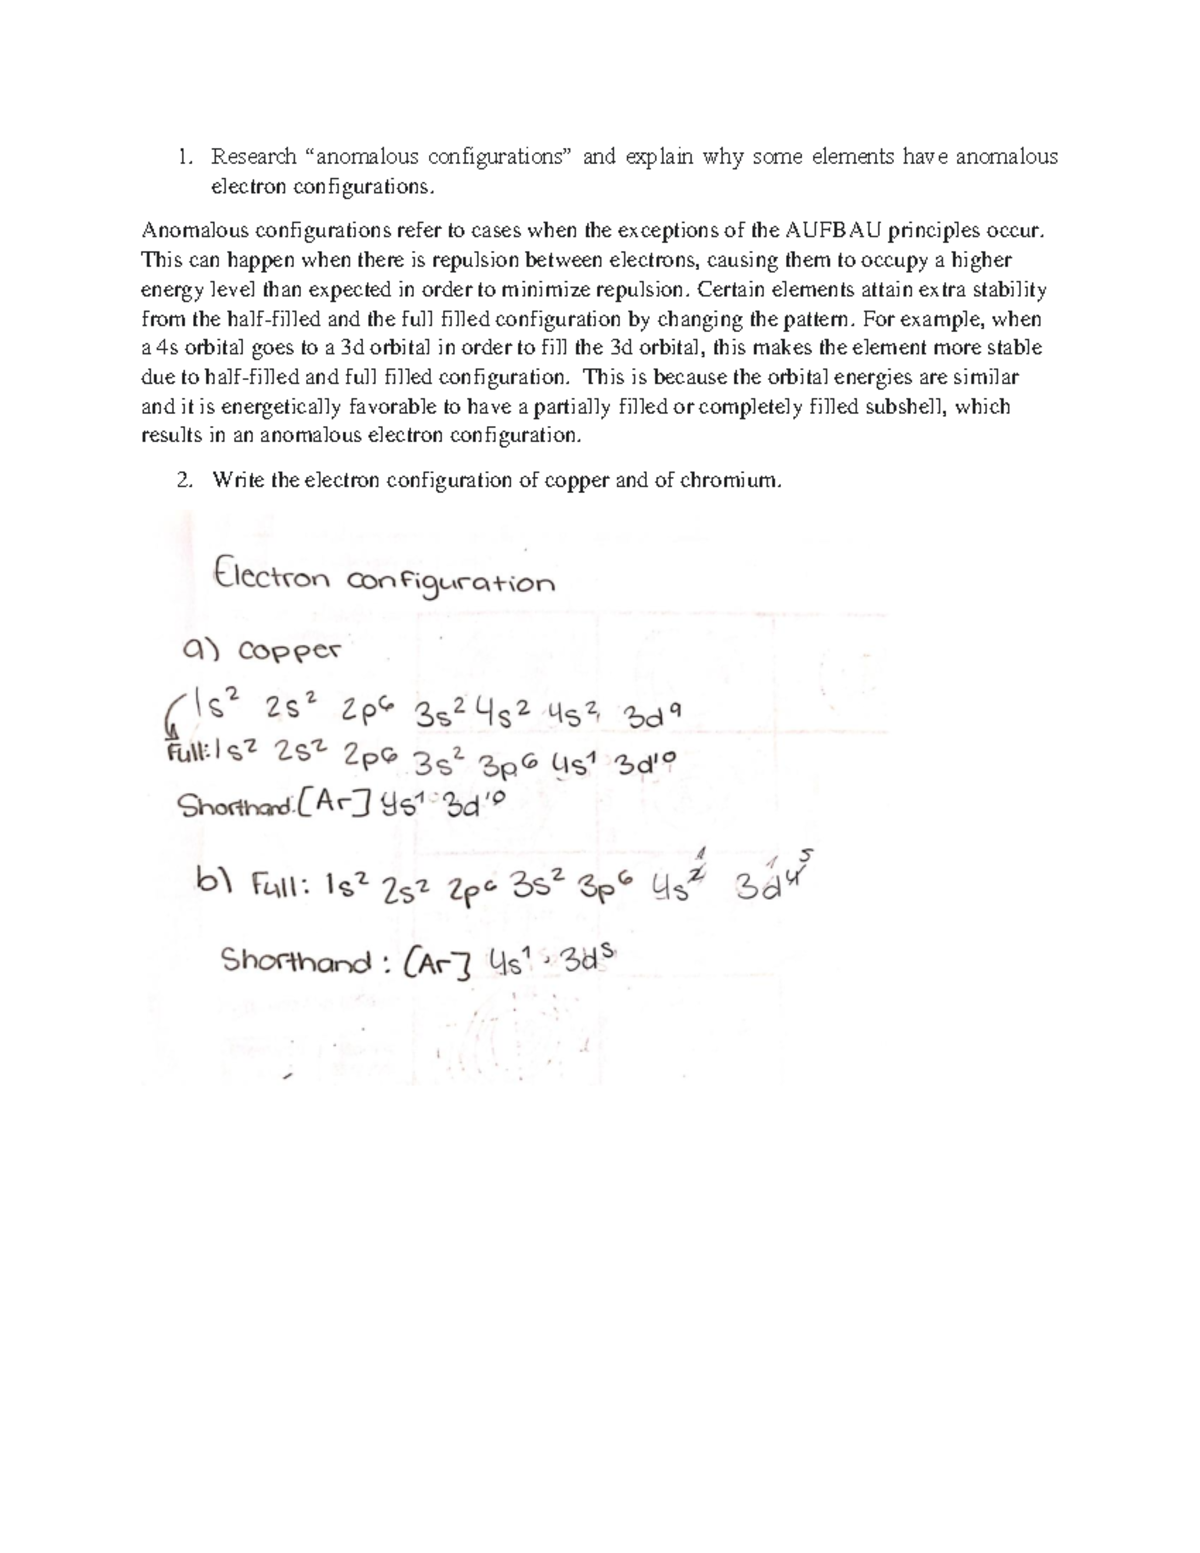 1. Research “anomalous configurations” and explain why some elements have anomalous
electron configurations.
Anomalous configurations refer to cases when the exceptions of the AUFBAU principles occur.
This can happen when there is repulsion between electrons, causing them to occupy a higher
energy level than expected in order to minimize repulsion. Certain elements attain extra stability
from the half-filled and the full filled configuration by changing the pattern. For example, when
a 4s orbital goes to a 3d orbital in order to fill the 3d orbital, this makes the element more stable
due to half-filled and full filled configuration. This is because the orbital energies are similar
and it is energetically favorable to have a partially filled or completely filled subshell, which
results in an anomalous electron configuration.
2. Write the electron configuration of copper and of chromium.
Electron configuration
a) copper
1s² 2s² 2p⁶ 3s² 4s² 4s² 3d⁹
Full: 1s² 2s² 2p⁶ 3s² 3p⁶ 4s¹ 3d¹⁰
Shorthand: [Ar] 4s¹ 3d¹⁰
b) Full: 1s² 2s² 2p⁶ 3s² 3p⁶ 4s¹ 3d⁵
Shorthand: [Ar] 4s¹ 3d⁵